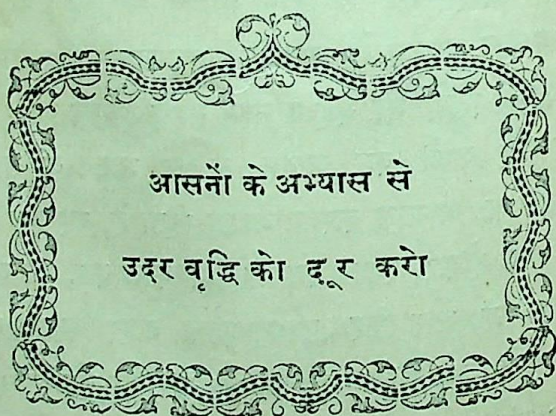 आसनों के अभ्यास से
उदर वृद्धि को दूर करो